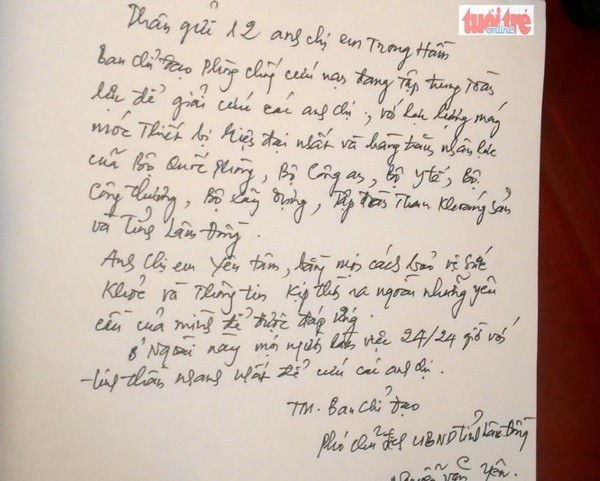 tuổi trẻ
online
Thân gửi 12 anh chị em Trong Hầm
Ban chỉ đạo phòng chống cứu nạn đang tập trung toàn
lực để giải cứu các anh chị, với lực lượng máy
móc Thiết bị hiện đại nhất và hàng trăm nhân lực
của Bộ Quốc Phòng, Bộ Công an, Bộ Y tế, Bộ
Công thương, Bộ Xây dựng, Tập đoàn Than Khoáng sản
và Tỉnh Lâm Đồng.
Anh chị em Yên tâm, bằng mọi cách bảo vệ sức
Khỏe và Thông tin Kịp thời ra ngoài những yêu
cầu của mình để được đáp ứng.
Ở Ngoài này mọi người làm việc 24/24 giờ với
tinh thần nhanh nhất để cứu các anh chị.
TM. Ban chỉ đạo
Phó chủ tịch UBND tỉnh Lâm Đồng
Nguyễn Văn Yên.